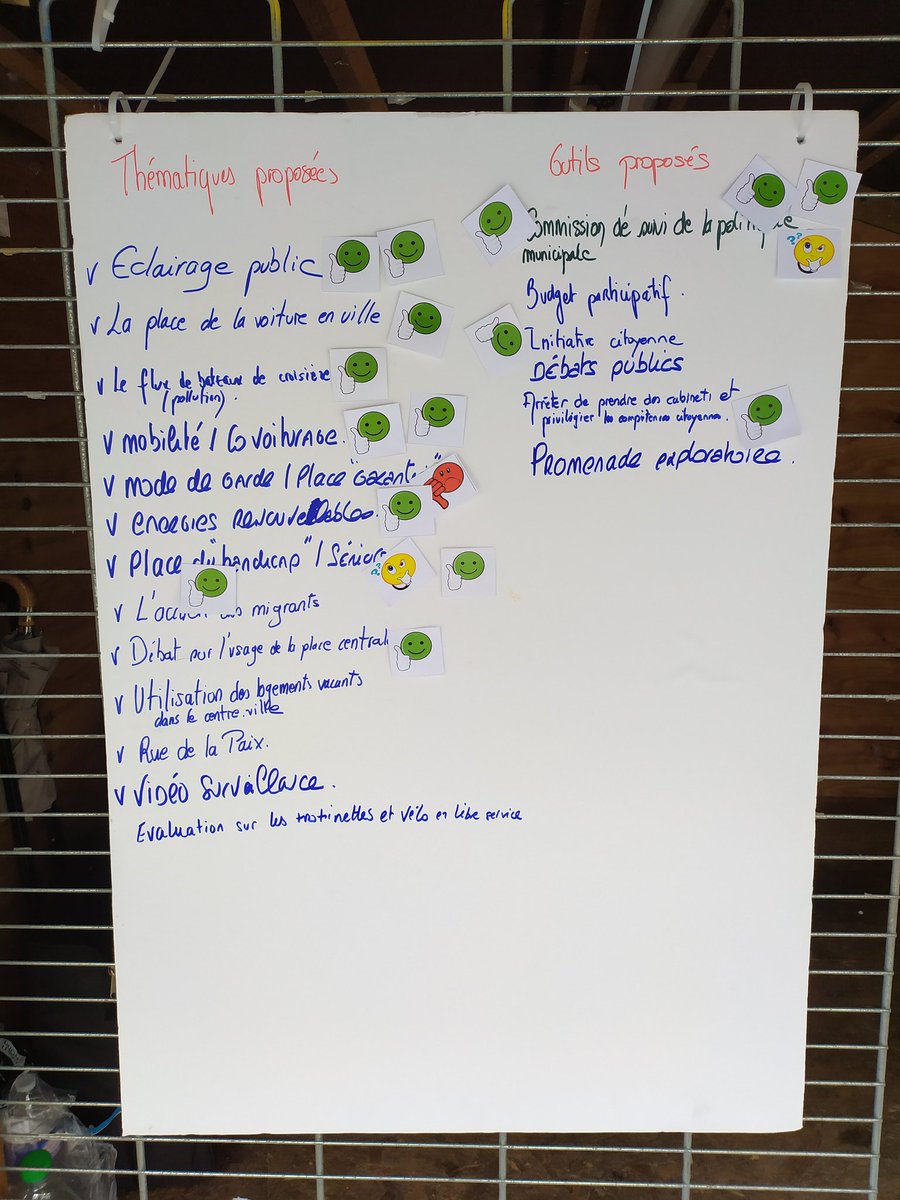 Thématiques proposées
v Eclairage public
v La place de la voiture en ville
v Le flux de bateaux de croisière
(pollution).
v mobilité / Co voiturage.
v mode de garde / Place "
v energies renouvelables.
v Place du "handicap" / Séniors
v L'accueil des migrants
v Débat sur l'usage de la place centrale
v Utilisation des logements vacants
dans le centre-ville
v Rue de la Paix.
v Vidéo Surveillance.
Evaluation sur les trotinettes et vélo en libre service
Outils proposés
Commission de suivi de la politique
municipale
Budget participatif.
Initiative citoyenne
Débats publics
Arrêter de prendre des cabinets et
privilégier les compétences citoyennes.
Promenade exploratoire.
??
??